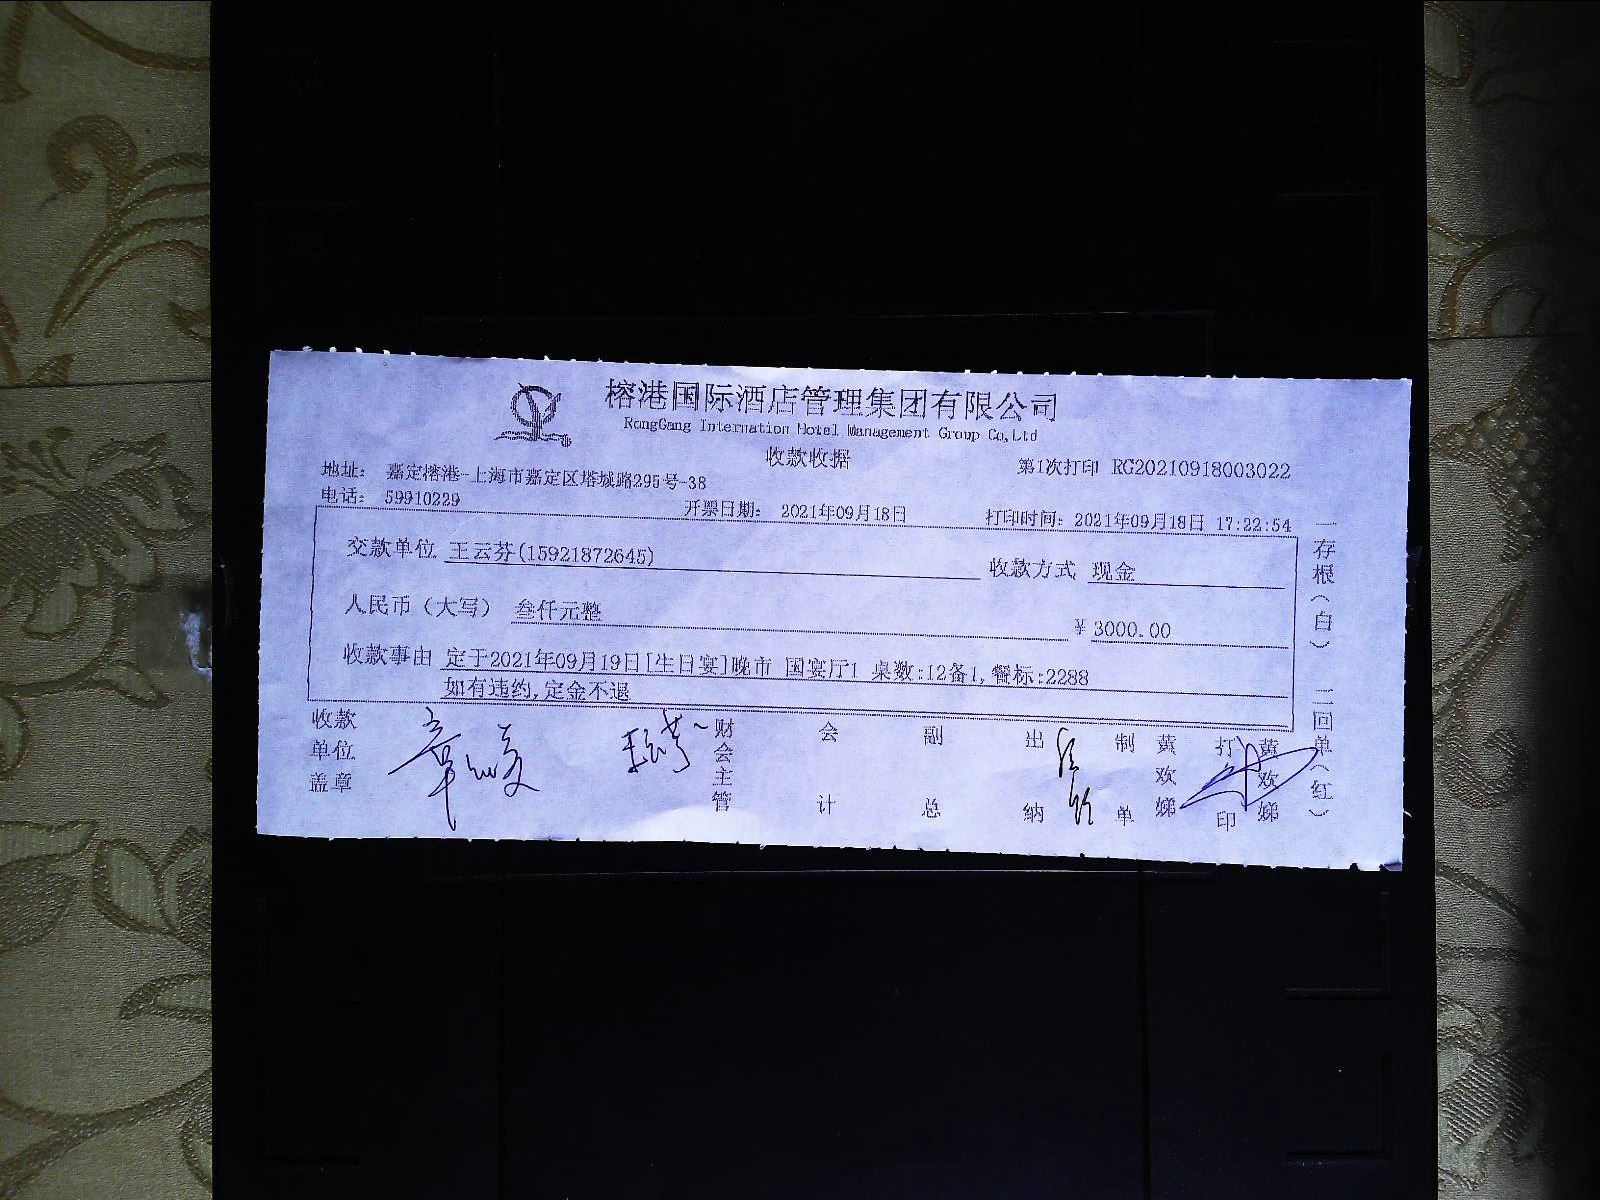 榕港国际酒店管理集团有限公司
RongGang Internation Hotel Management Group Co,Ltd
收款收据
第1次打印 RG20210918003022
地址： 嘉定榕港-上海市嘉定区塔城路295号-38
电话： 59910229
开票日期： 2021年09月18日 打印时间：2021年09月18日 17:22:54
交款单位 王云芬(15921872645) 收款方式 现金
人民币（大写） 叁仟元整 ￥3000.00
收款事由 定于2021年09月19日[生日宴]晚市 国宴厅1 桌数:12备1,餐标:2288
如有违约,定金不退
收款单位盖章
财会主管 会计 副总 出纳 制单 黄欢娣 打印 黄欢娣
一存根（白） 二回单（红）